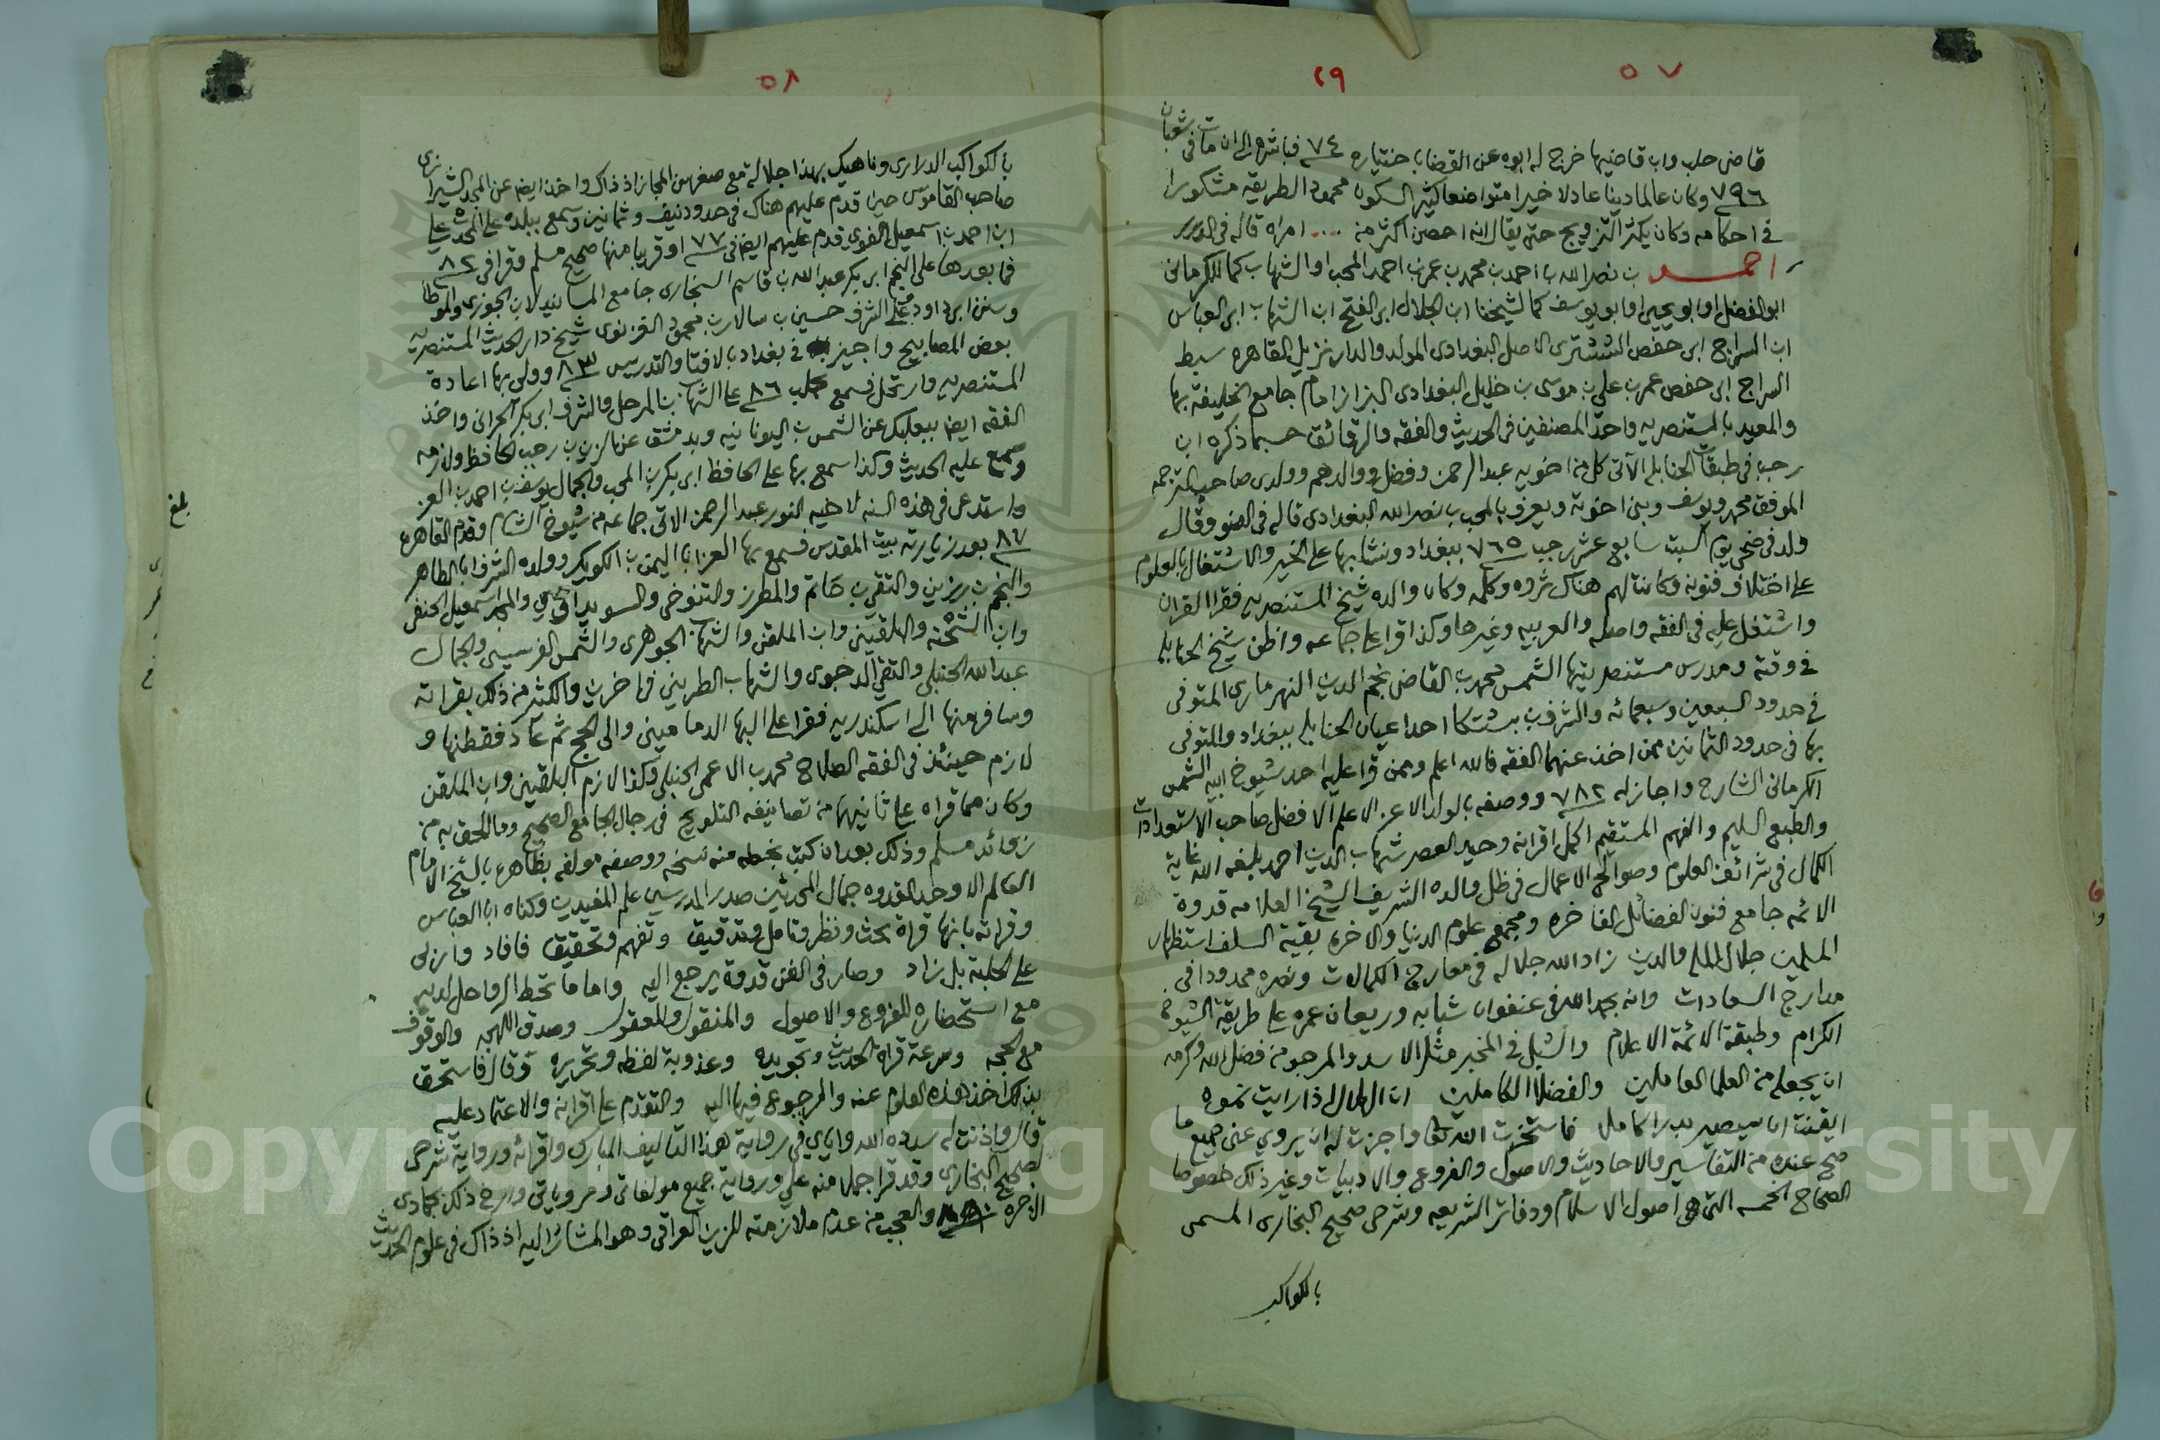 ٥٧
٢٩
قاضى حلب وابن قاضيها خرج له ابوه عن القضا باختياره ٧٤ فباشره الى ان مات فى شعبان
٧٩٦ وكان عالما دينا عادلا خيرا متواضعا كثير السكون محمود الطريقه مشكورا
فى احكامه وكان يكثر التزويج حتى يقال انه احصن اكثر من .... امراه قاله فى الدرر
احمد بن نصر الله بن احمد بن محمد بن عمر بن احمد المحب او الشهاب كما للكرمانى
ابو الفضل او ابو يحيى او ابو يوسف كما لشيخنا ابن الجلال ابى الفتح ابن الشهاب ابى العباس
ابن السراج ابى حفص التسترى الاصل البغدادى المولد والدار نزيل القاهره سبط
السراج ابى حفص عمر بن على بن موسى بن خليل البغدادى البزاز امام جامع الخليفة بها
والمعيد بالمستنصريه واحد المصنفين فى الحديث والفقه والرقائق حسبما ذكره ابن
رجب فى طبقات الحنابله الآتى كل من اخويه عبد الرحمن وفضل ووالدهم وولدى صاحب الترجمه
الموفق محمد ويوسف وبنى اخوته ويعرف بالمحب بن نصر الله البغدادى قاله فى الضو وقال
ولد فى ضحى يوم السبت سابع عشر رجب ٧٦٥ ببغداد ونشا بها على الخير والاشتغال بالعلوم
على اختلاف فنونه وكانت لهم هناك ثروه وكلمه وكان والده شيخ المستنصريه فقرا القران
واشتغل عليه فى الفقه واصله والعربيه وغيرها وكذا قرا على جماعه واظن شيخ الحنابله
فى وقته ومدرس مستنصريتها الشمس محمد بن القاضى نجم الدين النهرمارى المتوفى
فى حدود السبعين وسبعمائه والشرف بن بشتكا احد اعيان الحنابله ببغداد والمتوفى
بها فى حدود الثمانين ممن اخذ عنهما الفقه فالله اعلم وممن قرا عليه احد شيوخ ابيه الشمس
الكرمانى الشارح واجاز له ٧٨٢ ووصفه بالولد الاعز الاعلم الافضل صاحب الاستعدادات
والطبع السليم والفهم المستقيم اكمل اقرانه وحيد العصر شهاب الدين احمد بلغه الله غاية
الكمال فى شرائف العلوم وصوالح الاعمال فى ظل والده الشريف الشيخ العلامه قدوة
الائمه جامع فنون الفضائل الفاخره ومجمع علوم الدنيا والاخره بقية السلف استظهار
المسلمين جلال المله والدين زاد الله جلاله فى معارج الكمالات ونصره محدودا فى
مدارج السعادات وانه بحمد الله فى عنفوان شبابه وريعان عمره على طريقة الشيوخ
الكرام وطبقة الائمة الاعلام والشبل فى المخبر مثل الاسد والمرجو من فضل الله وكرمه
ان يجعله من العلما العاملين والفضلا الكاملين ان الهلال اذا رايت نموه
ايقنت ان سيصير بدرا كاملا فاستخرت الله تعا واجزت له ان يروى عنى جميع ما
صح عنده من التفاسير والاحاديث والاصول والفروع والادبيات وغير ذلك خصوصا
الصحاح الخمسه التى هى اصول الاسلام ودفاتر الشريعه وشرحى صحيح البخارى المسمى
بالكواكب
٥٨
بالكواكب الدرارى وناهيك بهذا جلالة مع صغر سن المجاز اذ ذاك واخذ ايضا عن المجد الشيرازى
صاحب القاموس حين قدم عليهم هناك فى حدود نيف وثمانين وسمع ببلده على المحدث على
ابن احمد بن اسمعيل الفوى قدم عليهم ايضا فى ٧٧ او قريبا منها صحيح مسلم وقرا فى ٨٢
فما بعدها على النجم ابى بكر عبد الله بن قاسم السنجارى جامع المسانيد لابن الجوزى والموطا
وسنن ابى داود وعلى الشرف حسين بن سالار بن محمود الغزنوى شيخ دار الحديث المستنصريه
بعض المصابيح واجيز فى بغداد بالافتا والتدريس ٨٣ وولى بها اعادة
المستنصريه وارتحل فسمع بحلب ٨٦ على الشهاب بن المرحل والشرف ابى بكر الحرانى واخذ
الفقه ايضا ببعلبك عن الشمس بن اليونانيه وبدمشق عن الزين بن رجب الحافظ ولازمه
وسمع عليه الحديث وكذا سمع بها على الحافظ ابى بكر بن المحب والجمال يوسف بن احمد بن العز
واستدعى فى هذه السنه لاخيه النور عبد الرحمن الاتى جماعه من شيوخ الشام وقدم القاهره
٨٧ بعد زيارته بيت المقدس فسمع بها العز ابا اليمن بن الكويك وولده الشرف ابا الطاهر
والنجم بن رزين والتقى بن حاتم والمطرز والتنوخى والسويداوى والمجد اسمعيل الحنفى
وابن الشحنه والبلقينى وابن الملقن والشهاب الجوهرى والشمس الفرسيسى والجمال
عبد الله الحنبلى والتقى الدجوى والشهاب الطرينى فى اخرين والكثير من ذلك بقراته
وسافر منها الى اسكندريه فقرا على البها الدمامينى والى الحج ثم عاد فقطنها و
لازم حينئذ فى الفقه الصلاح محمد بن الاعمى الحنبلى وكذا لازم البلقينى وابن الملقن
وكان مما قراه على ثانيهما من تصانيفه التلويح فى رجال الجامع الصحيح وما الحق به من
زوائد مسلم وذلك بعد ان كتب بخطه منه نسخه ووصفه مولفه بظاهره بالشيخ الامام
العالم الاوحد القدوه جمال المحدثين صدر المدرسين علم المفيدين وكناه ابا العباس
وقراته بانها قراة بحث ونظر وتامل وتدقيق وتفهم وتحقيق فافاد واربى
على الحلبة بل زاد وصار فى الفن قدوة يرجع اليه واماما تحط الرواحل لديه
مع استحضاره للفروع والاصول والمنقول والمعقول وصدق اللهجه والوقوف
مع الحجه وسرعة قراة الحديث وتجويده وعذوبة لفظه وتحريره وقال فاستحق
بذلك اخذ هذه العلوم عنه والرجوع فيها اليه والتقدم على اقرانه والاعتماد عليه
قال واذنت له سدده الله واياى فى رواية هذا التاليف المبارك واقرائه ورواية شرحى
لصحيح البخارى وقد قرا جملا منه على ورواية جميع مولفاتى ومروياتى وارخ ذلك بجمادى
الاخره والعجب من عدم ملازمته للزين العراقى وهو المشار اليه اذ ذاك فى علوم الحديث
بلغ
Copyright © King Saud University